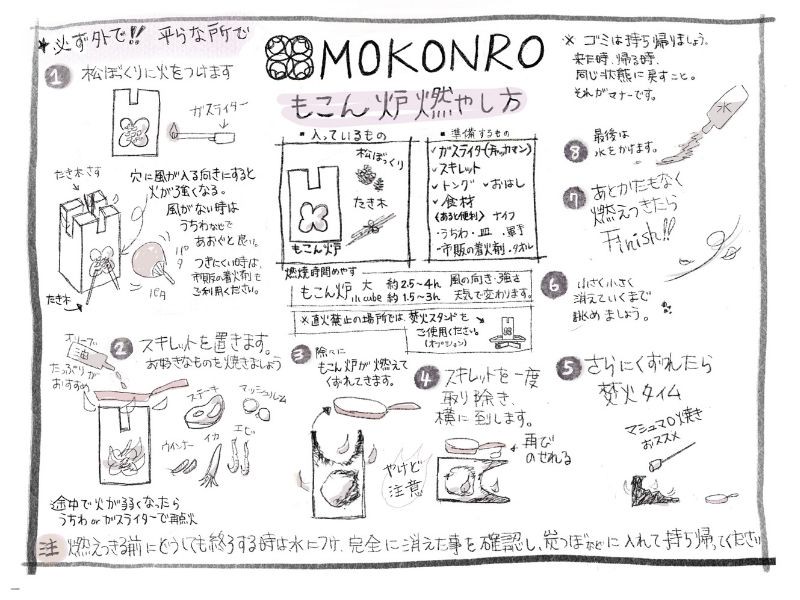 ★必ず外で!! 平らな所で
MOKONRO
もこん炉 燃やし方
※ ゴミは持ち帰りましょう。
来た時、帰る時、
同じ状態に戻すこと。
それがマナーです。
1 松ぼっくりに火をつけます
ガスライター
たき木さす
穴に風が入る向きにすると
火が強くなる。
風がない時は
うちわなどで
あおぐと良い。
つきにくい時は、
市販の着火剤も
ご利用ください。
パタ
パタ
たき木
▪入っているもの
松ぼっくり
たき木
もこん炉
▪準備するもの
✓ガスライター(チャッカマン)
✓スキレット
✓トング ✓おはし
✓食材
《あると便利》 ナイフ
・うちわ・皿 ・軍手
・市販の着火剤・タオル
燃焼時間めやす
もこん炉 大 約2.5~4h
小cube 約1.5~3h
風の向き・強さ
天気で変わります。
※直火禁止の場所では、焚火スタンドを
ご使用ください。
(オプション)
2 スキレットを置きます。
お好きなものを焼きましょう
オリーブ
油
たっぷりが
おすすめ
ステーキ
マッシュルーム
ウインナー
イカ
エビ
途中で火が弱くなったら
うちわorガスライターで再点火
3 除々に
もこん炉が燃えて
くずれてきます。
4 スキレットを一度
取り除き、
横に倒します。
やけど
注意
再び
のせれる
5 さらにくずれたら
焚火タイム
マシュマロ焼き
おススメ
6 小さく小さく
消えていくまで
眺めましょう。
7 あとかたもなく
燃えつきたら
Finish!!
8 最後は
水をかけます。
水
注 燃えつきる前にどうしても終了する時は水につけ、完全に消えた事を確認し、炭つぼなどに入れて持ち帰ってください